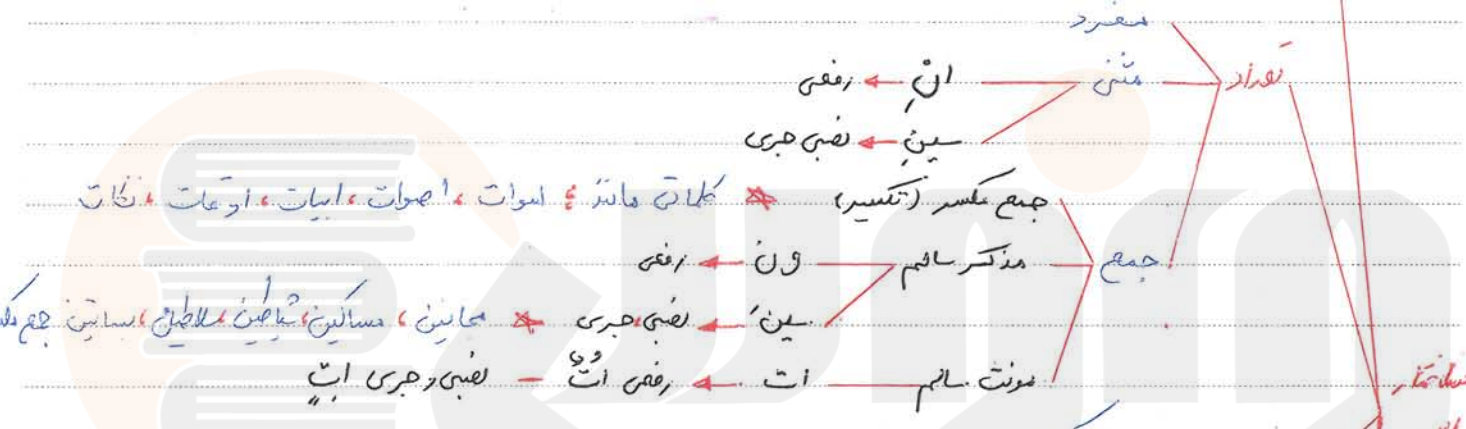 مفرد
تعداد مثنی انِ ← رفعی
ینِ ← نصبی جری
جمع مکسر (تکسیر) * کلماتی مانند: اموات، اصوات، ابیات، اوقات، نکات
جمع مذکر سالم ونَ ← رفعی
ینَ ← نصبی، جری * مجانین، مساکین، شیاطین، سلاطین، بساتین جمع
مونث سالم ات ← رفعی اتُ – نصبی و جری اتِ